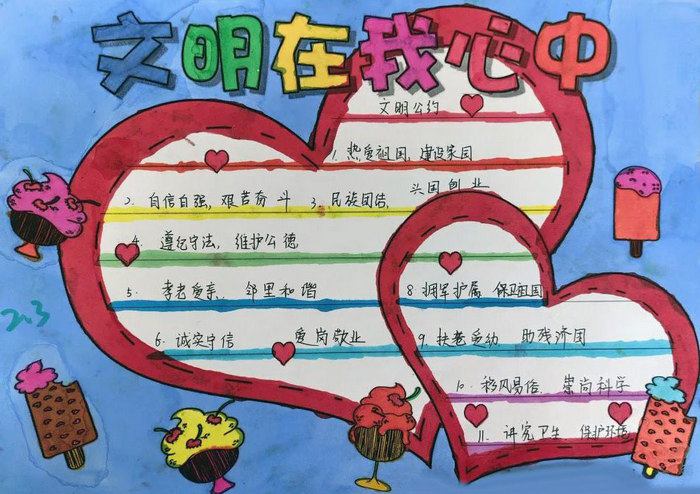 文明在我心中
文明公约
1. 热爱祖国，建设家园
2. 自信自强，艰苦奋斗 3. 民族团结， 兴国创业
4. 遵纪守法， 维护公德
5. 孝老爱亲、 邻里和谐
6. 诚实守信 爱岗敬业
8 拥军护属 保卫祖国
9. 扶老爱幼 助残济困
10. 移风易俗、 崇尚科学
11. 讲究卫生 保护环境
2.3